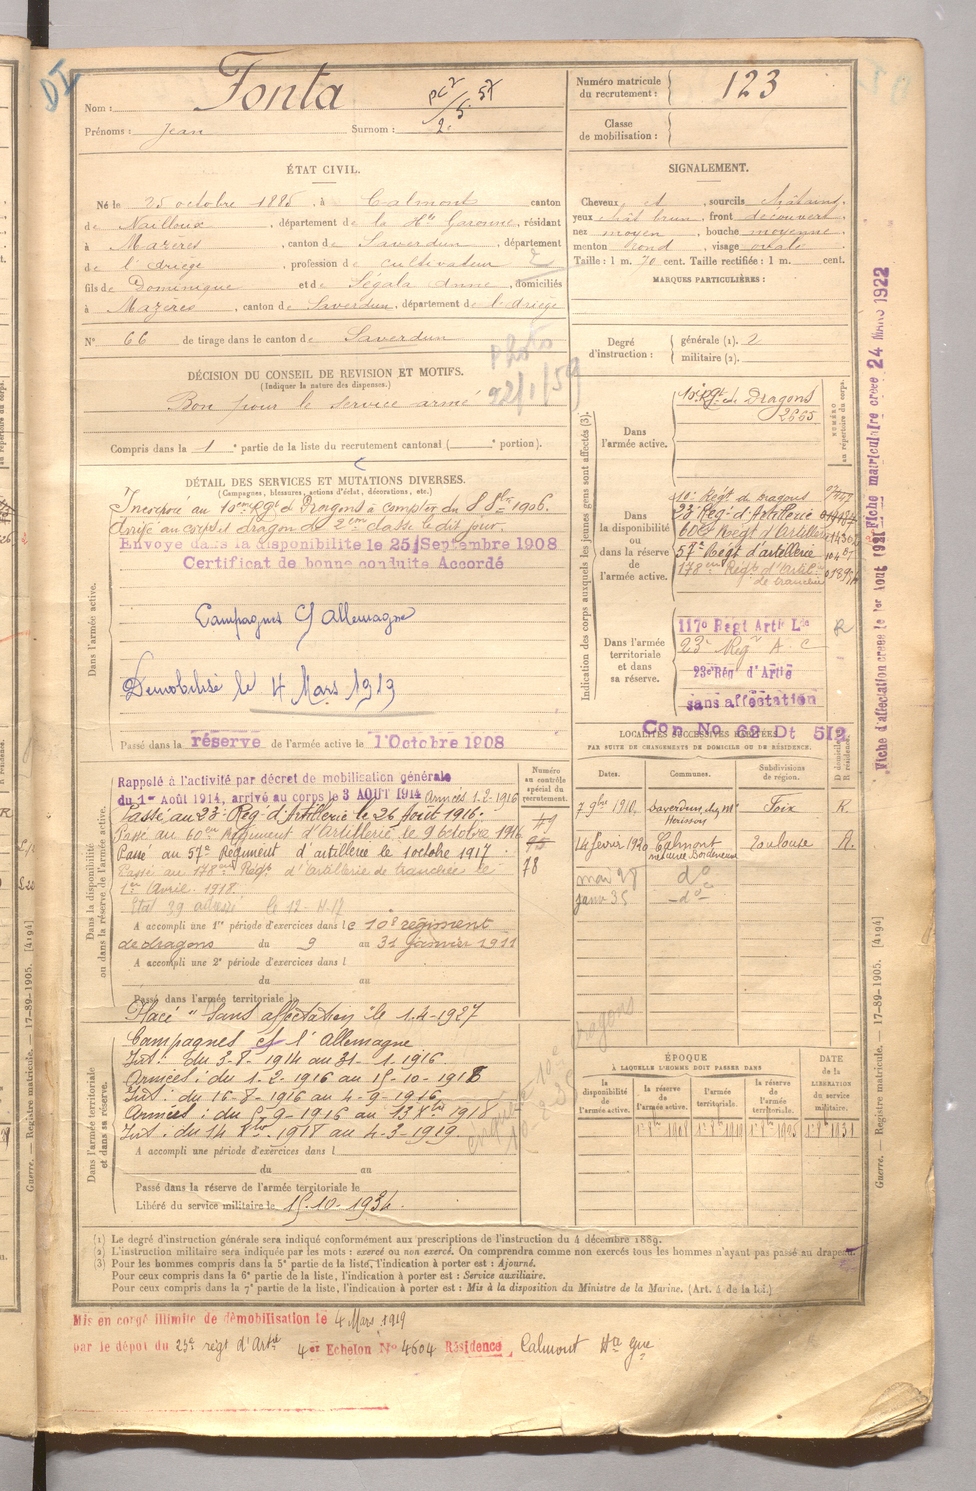 Nom : Fonta
Prénoms : Jean Surnom :
Numéro matricule du recrutement : 123
Classe de mobilisation :
ÉTAT CIVIL.
Né le 25 octobre 1885, à Calmont canton
de Nailloux, département de la Hte Garonne, résidant
à Mazères, canton de Saverdun, département
de l'Ariège, profession de cultivateur
fils de Dominique et de Ségala Anne, domiciliés
à Mazères, canton de Saverdun, département de l'Ariège
N° 66 de tirage dans le canton de Saverdun
SIGNALEMENT.
Cheveux et, sourcils châtains,
yeux chât brun, front découvert,
nez moyen, bouche moyenne,
menton rond, visage ovale
Taille : 1 m. 70 cent. Taille rectifiée : 1 m. cent.
MARQUES PARTICULIÈRES :
Degré d'instruction : générale (1). 2
militaire (2).
DÉCISION DU CONSEIL DE REVISION ET MOTIFS.
(Indiquer la nature des dispenses.)
Bon pour le service armé
22/1/59
Compris dans la 1 e partie de la liste du recrutement cantonal ( e portion).
DÉTAIL DES SERVICES ET MUTATIONS DIVERSES.
(Campagnes, blessures, actions d'éclat, décorations, etc.)
Dans l'armée active.
Incorporé au 10eme Rgt de Dragons à compter du 8 8bre 1906.
Arrivé au corps et dragon de 2eme classe le dit jour.
Envoyé dans la disponibilité le 25 Septembre 1908
Certificat de bonne conduite Accordé
Campagnes C/ Allemagne
Démobilisé le 4 Mars 1919
Passé dans la réserve de l'armée active le 1 Octobre 1908
Indication des corps auxquels les jeunes gens sont affectés (3).
NUMÉRO au répertoire du corps.
Dans l'armée active.
10e Rgt de Dragons
2665
Dans la disponibilité ou dans la réserve de l'armée active.
10e Régt de Dragons
23e Régt d'Artillerie
60e Régt d'Artillerie
57e Régt d'artillerie
178eme Régt d'Artil.
de tranchée
Dans l'armée territoriale et dans sa réserve.
117e Régt Artie Lde
23e Régt A C
23e Rég' d'Artie
sans affectation
R
Con No 62 Dt 512
LOCALITÉS SUCCESSIVES HABITÉES
PAR SUITE DE CHANGEMENTS DE DOMICILE OU DE RÉSIDENCE.
Dates. Communes. Subdivisions de région. D domicile. R résidence.
7 9bre 1910. Saverdun, chez Mr Hérisson Foix R.
14 février 1920 Calmont Toulouse R.
mai 27 do
janv 35 do
Dans la disponibilité ou dans la réserve de l'armée active.
Numéro au contrôle spécial du recrutement.
49
95
78
Rappelé à l'activité par décret de mobilisation générale
du 1er Août 1914, arrivé au corps le 3 AOUT 1914 Armées 1.2.1916
Passé au 23e Rég. d'Artillerie le 26 Août 1916.
Passé au 60eme Régiment d'Artillerie le 9 octobre 1916
Passé au 57e Régiment d'artillerie le 1 octobre 1917.
Passé au 178eme Régt d'Artillerie de tranchée le
1er Avril 1918.
A accompli une 1re période d'exercices dans le 10e régiment
de dragons du 9 au 31 Janvier 1911
A accompli une 2e période d'exercices dans l
du au
Passé dans l'armée territoriale le
Placé "sans affectation" le 1.4.1927
Dans l'armée territoriale et dans sa réserve.
Campagnes c/ l'Allemagne
Int. : du 3-8-1914 au 31-1-1916.
Armées : du 1-2-1916 au 15-10-1916
Int. : du 16-8-1916 au 4-9-1916
Armées : du 5-9-1916 au 13 Xbre 1918
Int. : du 14 Xbre 1918 au 4-3-1919.
A accompli une période d'exercices dans l
du au
Passé dans la réserve de l'armée territoriale le
Libéré du service militaire le 15.10.1934
ÉPOQUE
À LAQUELLE L'HOMME DOIT PASSER DANS
la disponibilité de l'armée active. la réserve de l'armée active. l'armée territoriale. la réserve de l'armée territoriale.
DATE de la LIBÉRATION du service militaire.
1er 8bre 1908 1er 8bre 1919 1er 8bre 1925 1er 8bre 1931
(1) Le degré d'instruction générale sera indiqué conformément aux prescriptions de l'instruction du 4 décembre 1889.
(2) L'instruction militaire sera indiquée par les mots : exercé ou non exercé. On comprendra comme non exercés tous les hommes n'ayant pas passé au drapeau.
(3) Pour les hommes compris dans la 5e partie de la liste, l'indication à porter est : Ajourné.
Pour ceux compris dans la 6e partie de la liste, l'indication à porter est : Service auxiliaire.
Pour ceux compris dans la 7e partie de la liste, l'indication à porter est : Mis à la disposition du Ministre de la Marine. (Art. 4 de la loi.)
Mis en congé illimité de démobilisation le 4 Mars 1919
par le dépot du 23e régt d'Artie 4er Echelon No 4604 Résidence, Calmont Hte Gne
Fiche d'affectation créée le 1er Aout 1921 Fiche matriculaire créée 24 MARS 1922
Guerre. — Registre matricule. — 17-89-1905. [4194]